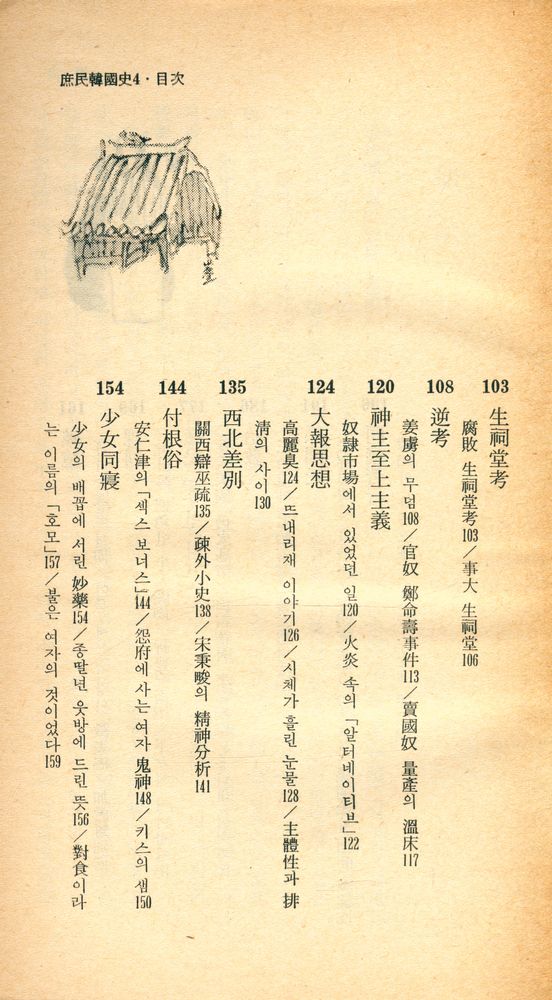 庶民韓國史4·目次
103 生祠堂考
腐敗 生祠堂考103／事大 生祠堂106
108 逆考
姜虜의 무덤108／官奴 鄭命壽事件113／賣國奴 量產의 溫床117
120 神主至上主義
奴隷市場에서 있었던 일120／火炎 속의 「알터네이티브」122
124 大報思想
高麗臭124／뜨내리재 이야기126／시체가 흘린 눈물128／主體性과 排
淸의 사이130
135 西北差別
關西辯巫疏135／疎外小史138／宋秉畯의 精神分析141
144 付根俗
安仁津의 「섹스 보너스」144／怨府에 사는 여자 鬼神148／키스의 샘150
154 少女同寢
少女의 배꼽에 서린 妙藥154／종딸년 웃방에 드린 뜻156／對食이라
는 이름의 「호모」157／불은 여자의 것이었다159